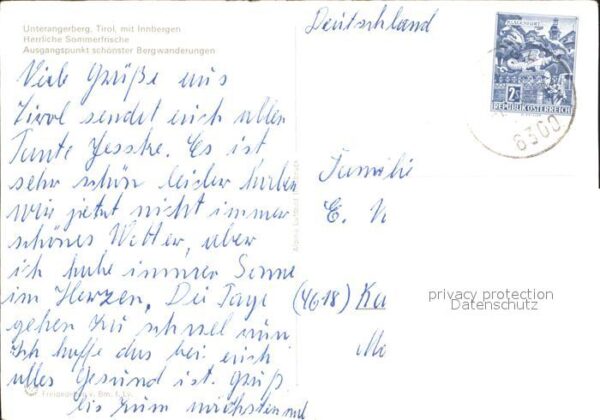 Unterangerberg, Tirol, mit Innbergen
Herrliche Sommerfrische
Ausgangspunkt schönster Bergwanderungen
Viele Grüße aus
Tirol sendet euch allen
Tante
Es ist
sehr schön leider haben
wir jetzt nicht immer
schönes Wetter, aber
ich habe immer Sonne
im Herzen, Die Tage
gehen zu schnel nun
Ich hoffe das bei euch
alles Gesund ist. Gruß
bis zum nächsten mal
Deutschland
KLAGENFURT
2 S
REPUBLIK ÖSTERREICH
6300
Familie
E. V
(4618) Ka
privacy protection
Datenschutz